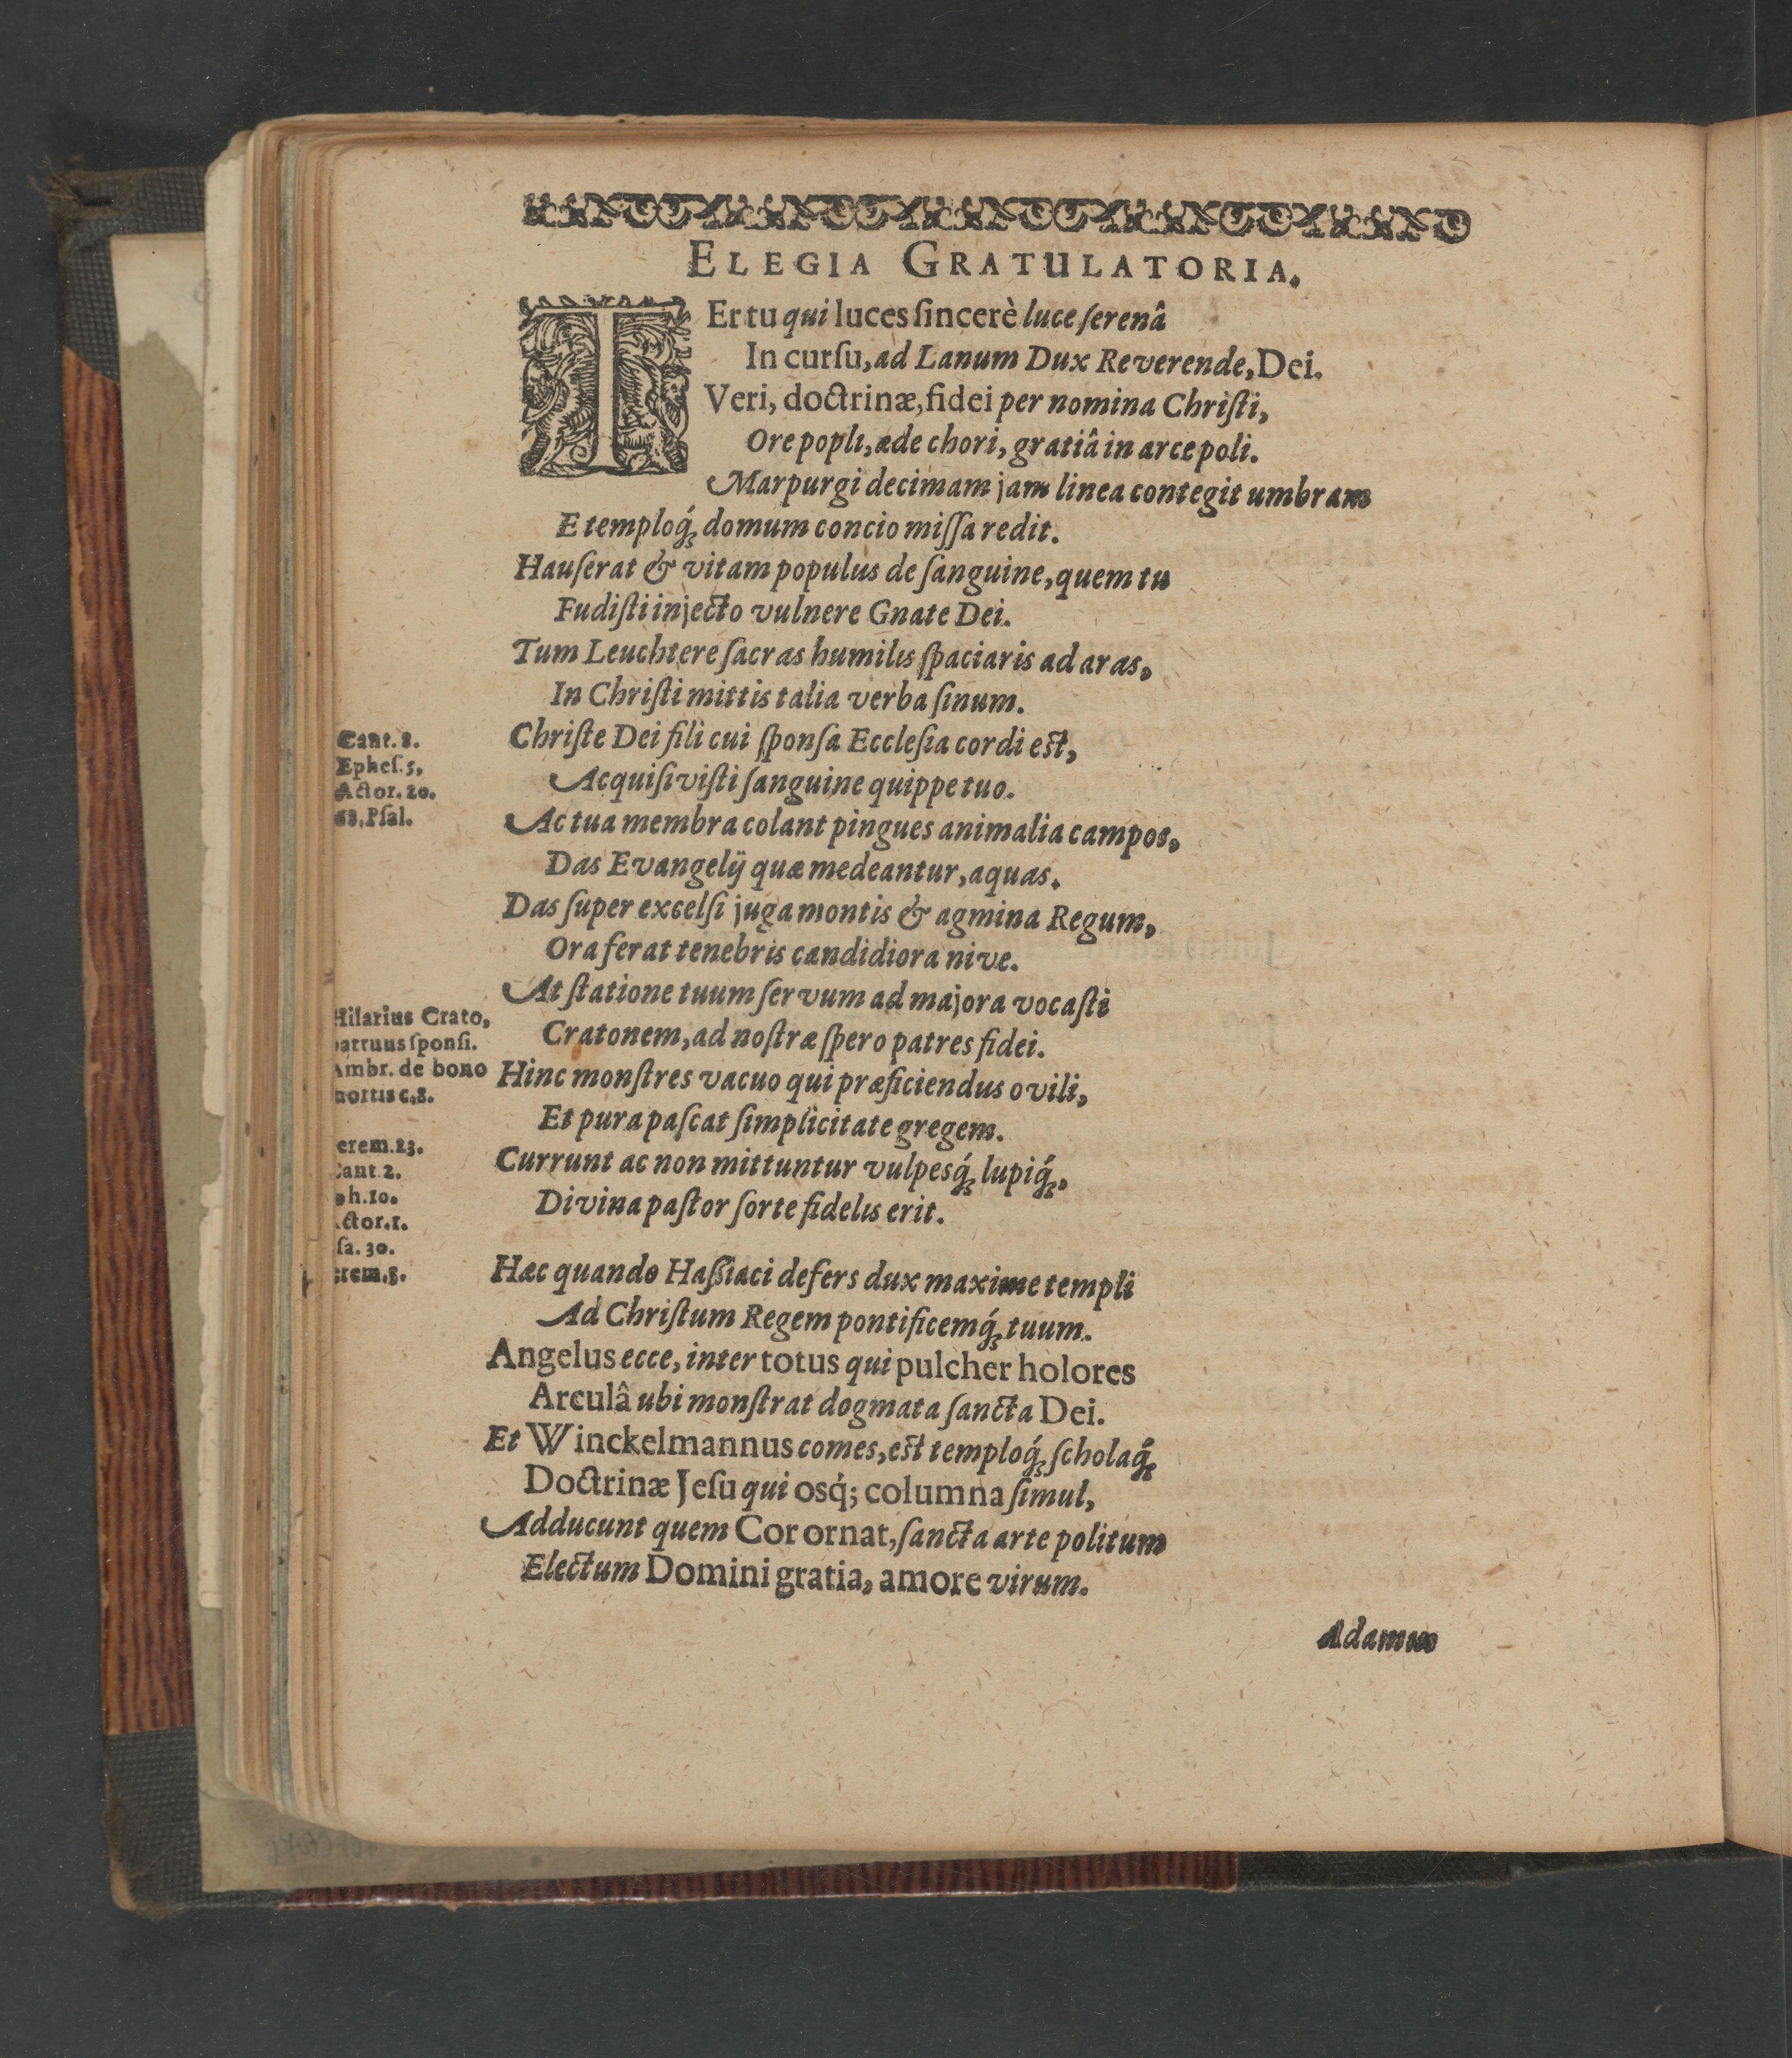 ELEGIA GRATULATORIA.
TEr tu qui luces ſincerè luce ſerenâ
In curſu, ad Lanum Dux Reverende, Dei.
Veri, doctrinæ, fidei per nomina Chriſti,
Ore popli, æde chori, gratiâ in arce poli.
Marpurgi decimam jam linea contegit umbram
E temploq́ꝫ domum concio miſſa redit.
Hauſerat & vitam populus de ſanguine, quem tu
Fudiſti injecto vulnere Gnate Dei.
Tum Leuchtere ſacras humilis ſpaciaris ad aras,
In Chriſti mittis talia verba ſinum.
Cant. 8.
Epheſ. 5,
Actor. 20.
68. Pſal.
Chriſte Dei fili cui ſponſa Eccleſia cordi eſt,
Acquiſiviſti ſanguine quippe tuo.
Ac tua membra colant pingues animalia campos,
Das Evangelij quæ medeantur, aquas.
Das ſuper excelſi juga montis & agmina Regum,
Ora ferat tenebris candidiora nive.
At ſtatione tuum ſervum ad majora vocaſti
Cratonem, ad noſtræ ſpero patres fidei.
Hilarius Crato,
patruus ſponſi.
Ambr. de bono
mortis c. 8.
Hinc monſtres vacuo qui præficiendus ovili,
Et pura paſcat ſimplicitate gregem.
Currunt ac non mittuntur vulpesq́ꝫ lupiq́ꝫ,
Divina paſtor ſorte fidelis erit.
erem. 23.
Cant. 2.
oh. 10.
ctor. 1.
ſa. 30.
erem. 8.
Hæc quando Haſſiaci defers dux maxime templi
Ad Chriſtum Regem pontificemq́ꝫ tuum.
Angelus ecce, inter totus qui pulcher holores
Arculâ ubi monſtrat dogmata ſancta Dei.
Et Winckelmannus comes, eſt temploq́ꝫ ſcholaq́ꝫ
Doctrinæ Jeſu qui osq́; columna ſimul,
Adducunt quem Cor ornat, ſancta arte politum
Electum Domini gratia, amore virum.
Adamum